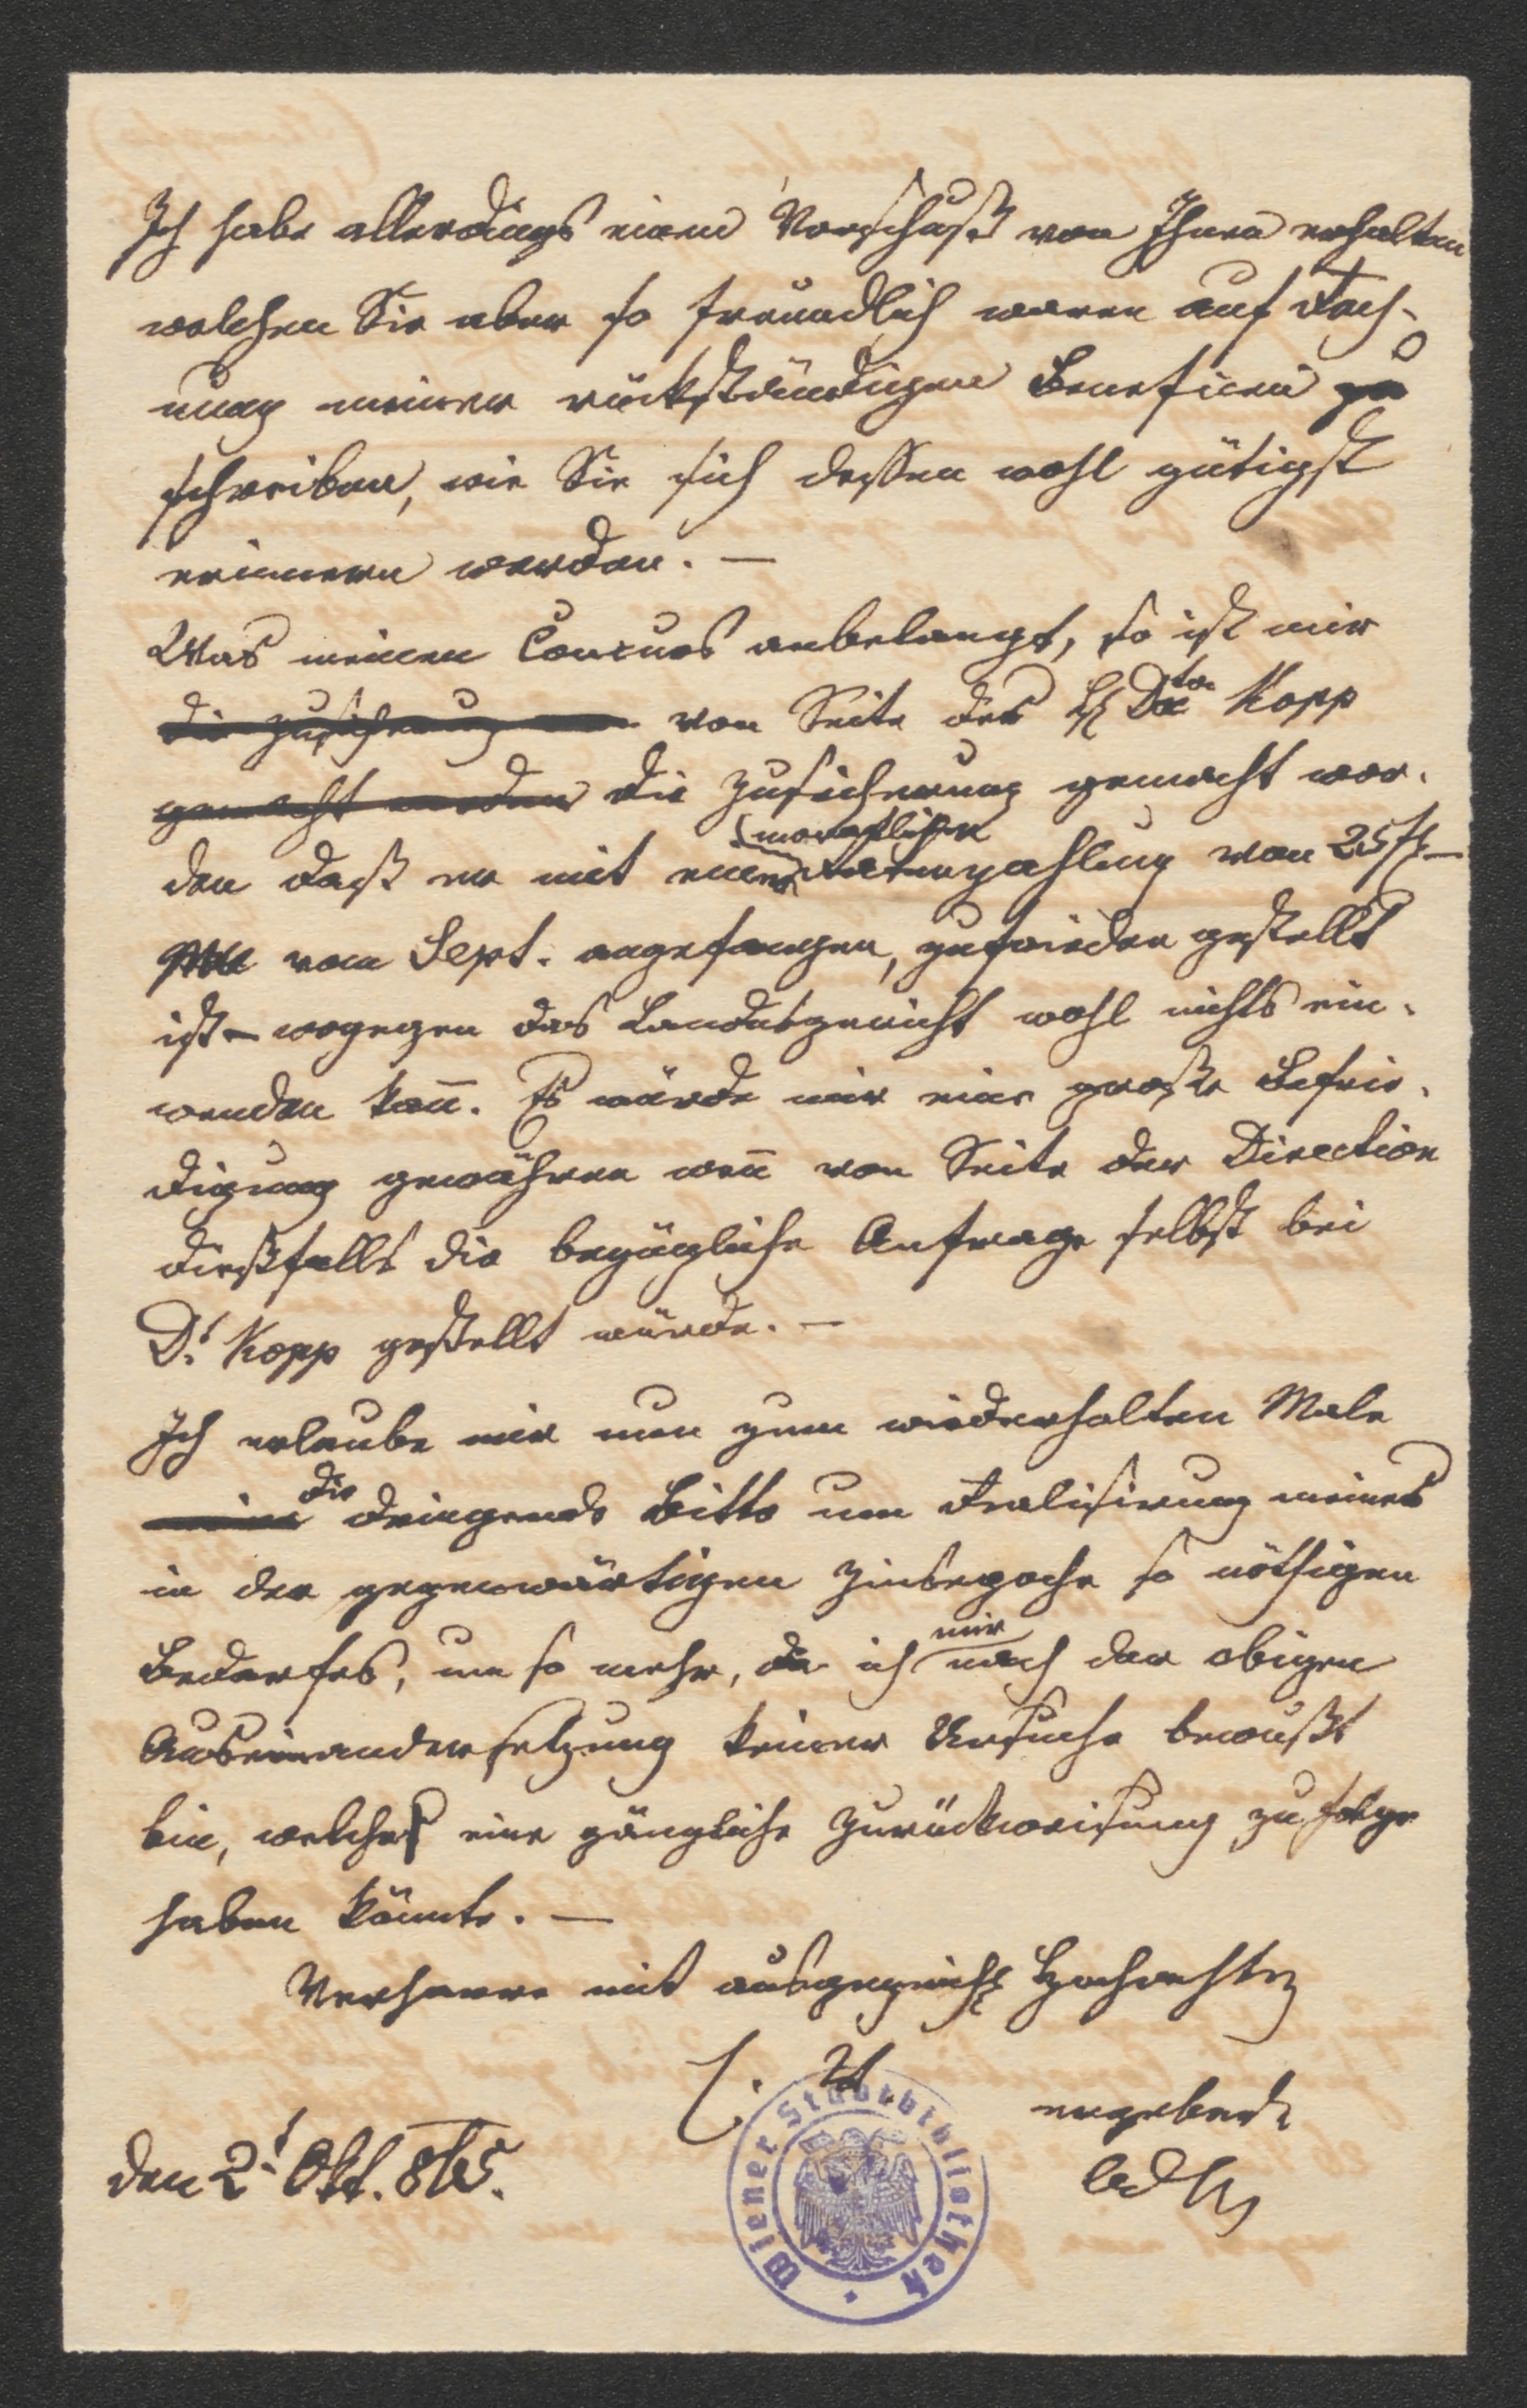 Ich habe allerdings einen Vorschuß von Ihnen erhalten
welchen Sie aber so freundlich waren auf Rech-
nung meiner rückständigen Beneficien zu
schreiben, wie Sie sich dessen wohl gütigst
erinnern werden. —
Was meinen Concurs anbelangt, so ist mir
die Zusicherung von Seite des H Dctor Kopp
gemacht worden die Zusicherung gemacht wor-
den daß er mit einer monatlichen Ratenzahlung von 25 fl —
vom Sept. angefangen, zufrieden gestellt
ist — wogegen das Landesgericht wohl nichts ein-
wenden kann. Es würde mir eine große Befrie-
digung gewähren wenn von Seite der Direction
dießfalls die bezügliche Anfrage selbst bei
Dr Kopp gestellt würde. —
Ich erlaube mir nun zum wiederholten Male
die dringende Bitte um Realisirung meines
in der gegenwärtigen Zinsepoche so nöthigen
Bedarfes, um so mehr, da ich mir nach der obigen
Auseinandersetzung keiner Ursache bewußt
bin, welche eine gängliche Zurückweisung zu Folge
haben könnte. —
Verharre mit ausgezeich Hochachtg
ergebenst
den 2t Okt. 865.
Wiener Stadtbibliothek